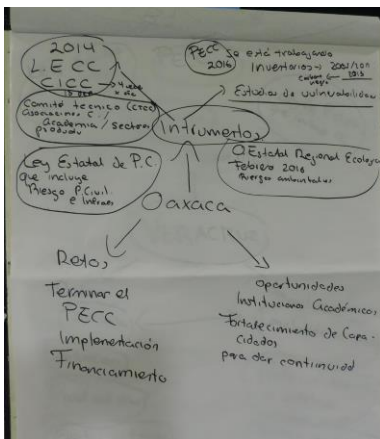 2014
L.E CC
CICC
Comité técnico (CTCC)
Asociaciones C./
Academia/Sectores
produ
PECC
2016
Se está trabajando
Inventarios
2015
Estudios de vulnerabilidad
Intrumentos
Ley Estatal de P.C.
que incluye
Riesgo P.Civil
e Infraes
O Estatal Regional Ecologico
Febrero 2016
ambientales
Oaxaca
Retos
Terminar el
PECC
Implementación
Financiamiento
oportunidades
Instituciones Académicas
Fortalecimiento de Capa-
cidades
para dar continuidad